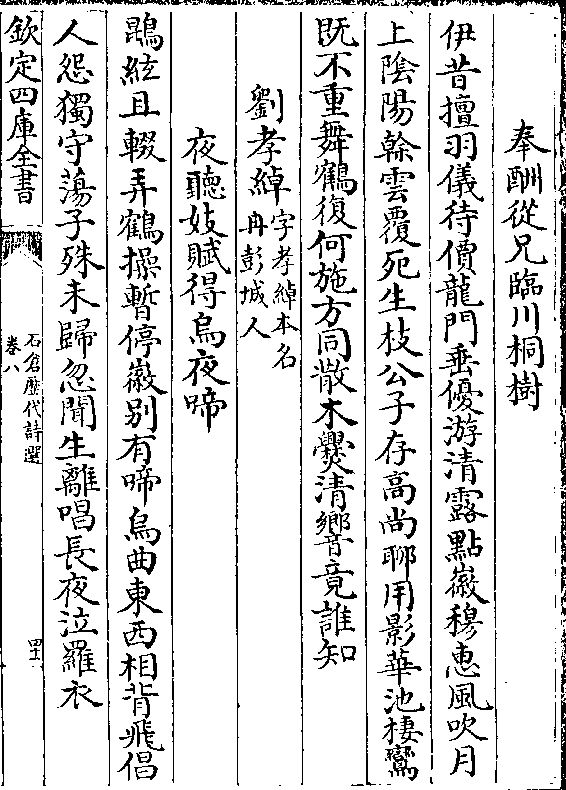 奉酬從兄臨川桐樹
伊昔擅羽儀待價龍門垂優游清露點徽穆惠風吹月
上陰陽榦雲覆死生枝公子存高尚聊用影華池棲鸞
既不重舞鶴復何施方同散木爨清響竟誰知
劉孝綽字孝綽本名冉彭城人
夜聽妓賦得烏夜啼
鵾絃且輟弄鶴操暫停徽别有啼烏曲東西相背飛倡
人怨獨守蕩子殊未歸忽聞生離唱長夜泣羅衣
欽定四庫全書
石倉歷代詩選
卷八